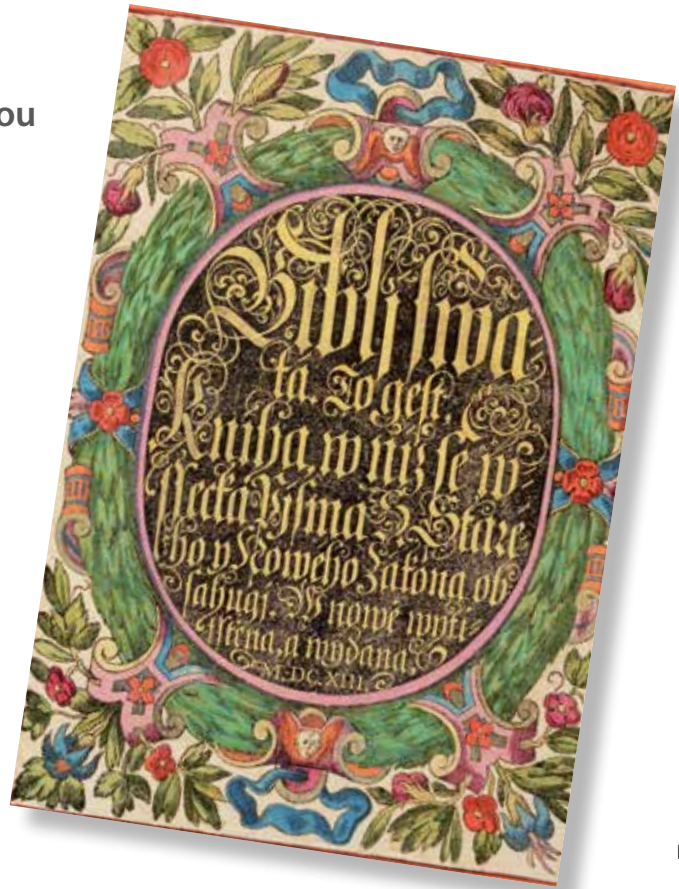 ou
Biblj swa
tá. To gest.
Kniha, w njž se w
ssecka Pjsma S. Staré
ho y Nowého Zákona ob
sahugj. W nowě wyti-
sstěná, a wydaná.
M.DC.XIII.